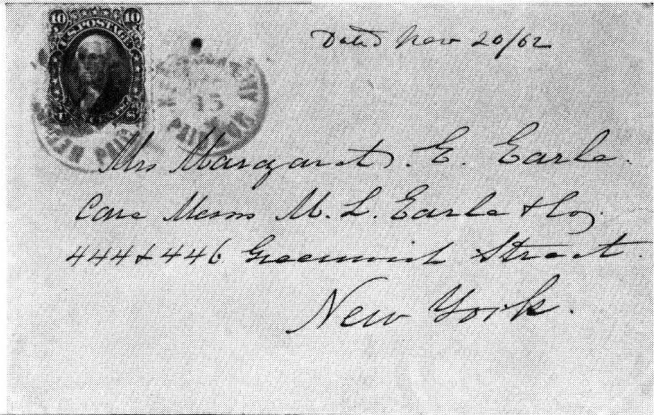 10 U.S. POSTAGE 10
Dated Nov 20/62
15
PAID
Mrs Margaret. E. Earle.
Care Messrs M. L. Earle & Co,
444 & 446 Greenwich Street.
New York.